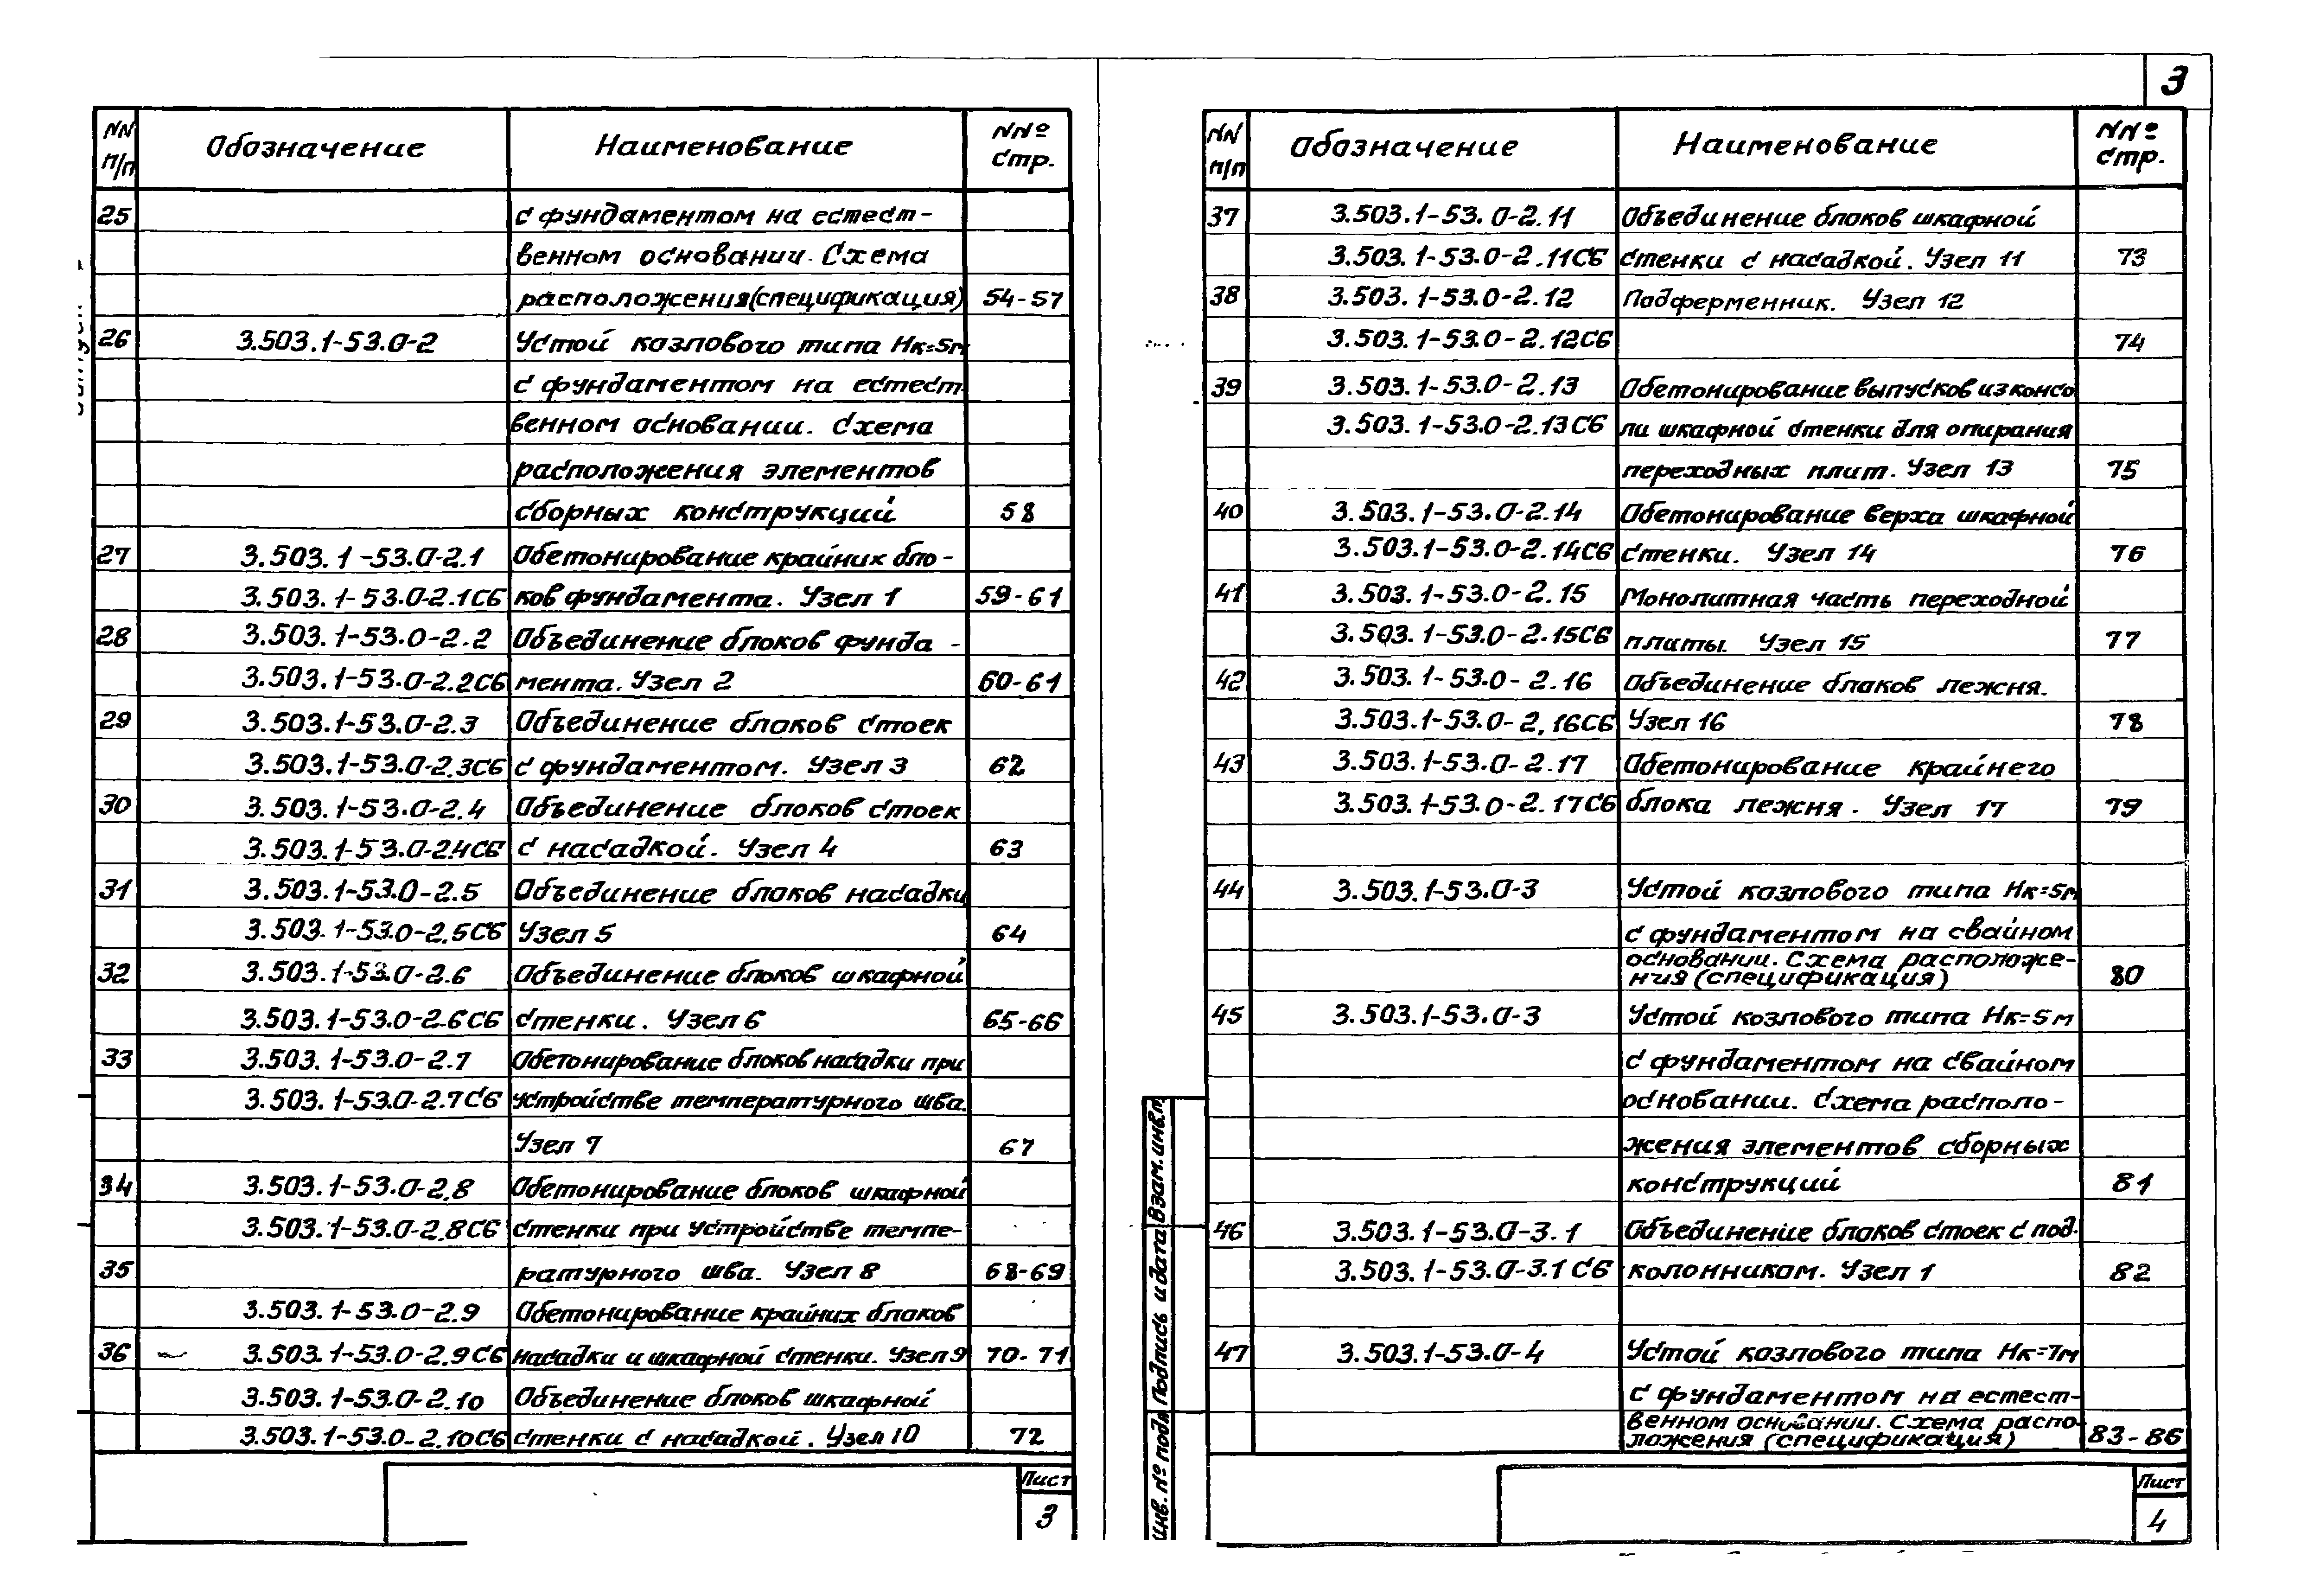 3
NN п/п Обозначение Наименование NNº стр.
25 с фундаментом на естест-
венном основании. Схема
расположения (спецификация) 54-57
26 3.503.1-53.0-2 Устой козлового типа Нк=5м
с фундаментом на естест-
венном основании. Схема
расположения элементов
сборных конструкций 58
27 3.503.1-53.0-2.1 Обетонирование крайних бло-
3.503.1-53.0-2.1СБ ков фундамента. Узел 1 59-61
28 3.503.1-53.0-2.2 Объединение блоков фунда-
3.503.1-53.0-2.2СБ мента. Узел 2 60-61
29 3.503.1-53.0-2.3 Объединение блоков стоек
3.503.1-53.0-2.3СБ с фундаментом. Узел 3 62
30 3.503.1-53.0-2.4 Объединение блоков стоек
3.503.1-53.0-2.4СБ с насадкой. Узел 4 63
31 3.503.1-53.0-2.5 Объединение блоков насадки
3.503.1-53.0-2.5СБ Узел 5 64
32 3.503.1-53.0-2.6 Объединение блоков шкафной
3.503.1-53.0-2.6СБ стенки. Узел 6 65-66
33 3.503.1-53.0-2.7 Обетонирование блоков насадки при
3.503.1-53.0-2.7СБ устройстве температурного шва.
Узел 7 67
34 3.503.1-53.0-2.8 Обетонирование блоков шкафной
3.503.1-53.0-2.8СБ стенки при устройстве темпе-
35 ратурного шва. Узел 8 68-69
3.503.1-53.0-2.9 Обетонирование крайних блоков
36 3.503.1-53.0-2.9СБ насадки и шкафной стенки. Узел 9 70-71
3.503.1-53.0-2.10 Объединение блоков шкафной
3.503.1-53.0-2.10СБ стенки с насадкой. Узел 10 72
Лист
3
NN п/п Обозначение Наименование NNº стр.
37 3.503.1-53.0-2.11 Объединение блоков шкафной
3.503.1-53.0-2.11СБ стенки с насадкой. Узел 11 73
38 3.503.1-53.0-2.12 Подферменник. Узел 12
3.503.1-53.0-2.12СБ 74
39 3.503.1-53.0-2.13 Обетонирование выпусков из консо
3.503.1-53.0-2.13СБ ли шкафной стенки для опирания
переходных плит. Узел 13 75
40 3.503.1-53.0-2.14 Обетонирование верха шкафной
3.503.1-53.0-2.14СБ стенки. Узел 14 76
41 3.503.1-53.0-2.15 Монолитная часть переходной
3.503.1-53.0-2.15СБ плиты. Узел 15 77
42 3.503.1-53.0-2.16 Объединение блоков лежня.
3.503.1-53.0-2.16СБ Узел 16 78
43 3.503.1-53.0-2.17 Обетонирование крайнего
3.503.1-53.0-2.17СБ блока лежня. Узел 17 79
44 3.503.1-53.0-3 Устой козлового типа Нк=5м
с фундаментом на свайном
основании. Схема расположе-
ния (спецификация) 80
45 3.503.1-53.0-3 Устой козлового типа Нк=5м
с фундаментом на свайном
основании. Схема располо-
жения элементов сборных
конструкций 81
46 3.503.1-53.0-3.1 Объединение блоков стоек с под.
3.503.1-53.0-3.1СБ колонникам. Узел 1 82
47 3.503.1-53.0-4 Устой козлового типа Нк=7м
с фундаментом на естест-
венном основании. Схема распо-
ложения (спецификация) 83-86
Инв. Nº подл Подпись и дата Взам. инв.
Лист
4